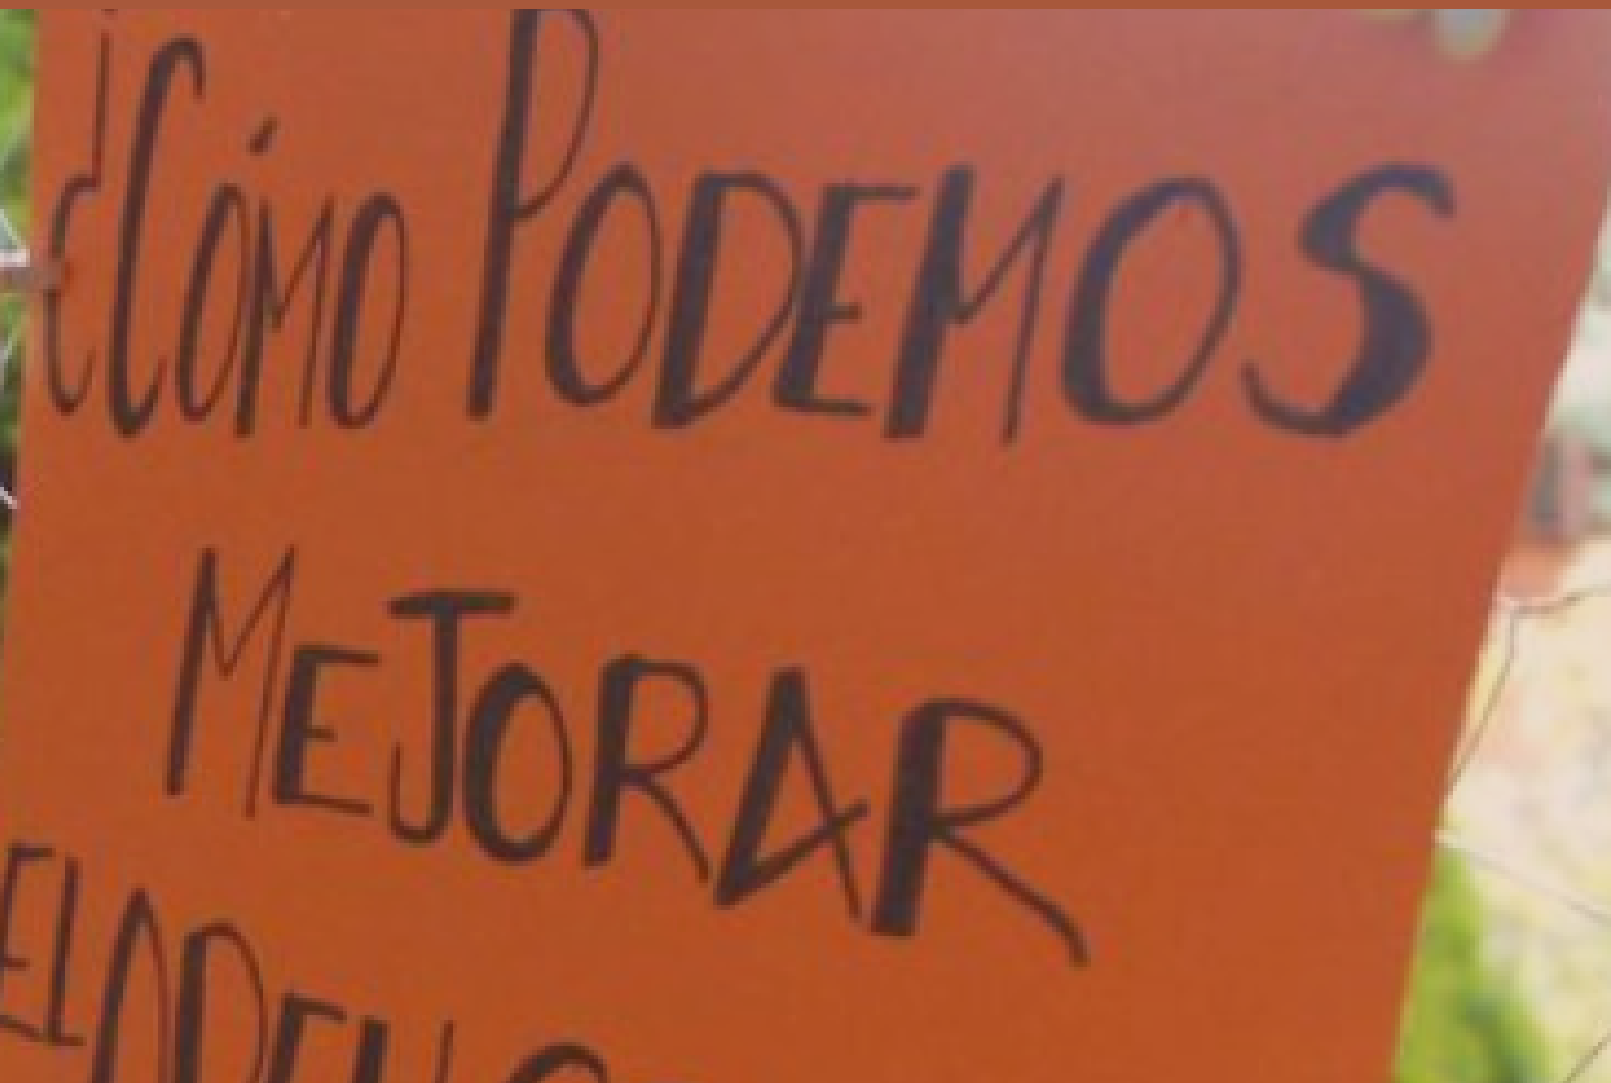 ¿CÓMO PODEMOS
MEJORAR
EL